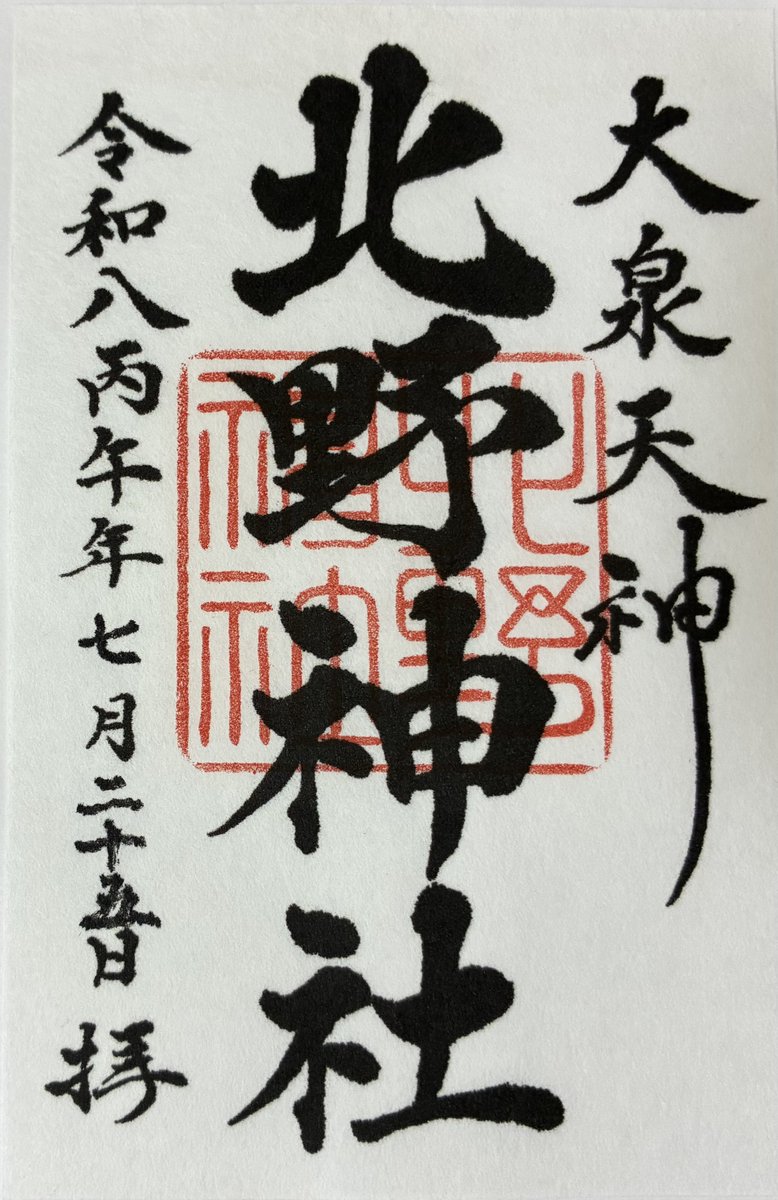 大泉天神
北野神社
令和八丙午年七月二十五日拝